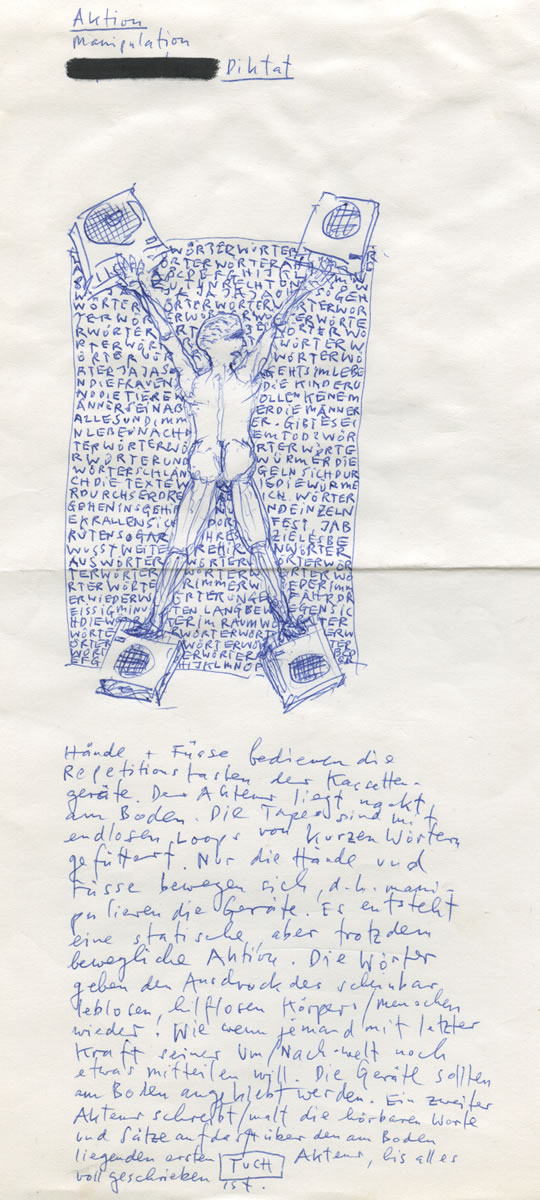 Aktion
Manipulation
Diktat
WÖRTERWÖRTER
WÖRTERWÖRTER
ÖRTERWÖRTER WÖRTERWÖRTE
RWÖRTER
RTERWÖRTER WÖRTERW
RTERJAJASO GEHTSIMLEBE
NDIEFRAUEN DIEKINDERU
NDDIETIERE OLLENKENEM
ÄNNERSEINAB ERDIEMÄNNER
ALLESUNDIMM ER. GIBTESEI
NLEBENNACHD EMTODZWÖR
TERWÖRTERWÖ RTERWÖRTE
RWÖRTERUND WÜRMERDIE
WÖRTERSCHLÄN GELNSICHDUR
CHDIETEXTEW DIEWÜRME
RDURCHSERDRE ICH. WÖRTER
GEHENINSGEHI NDEINZELN
EKRALLENSICH DORT FEST. JAB
RUTENSOGAR ZIELESBE
WUSSTWEITE NWÖRTER
AUSWÖRTER WÖRTERN ÖRTERWÖR
TERWÖRTER WÖRTER
RTERWÖRTE RIMMERW IEDERIMM
ERWIEDERW ÖRTERUNGE FÄHRDR
EISSIGMINU TENLANGBEW EGENSIC
HDIEWÖRTER IMRAUMW
WÖRTE WÖRTERWÖR
ÖRTER WÖRTERWÖRTE
WÖR ERWÖRTER
EFG HIJKLMNOP
Hände + Füsse bedienen die
Repetitionstasten der Kassetten-
geräte. Der Akteur liegt nackt
am Boden. Die Tapes sind mit
endlosen Loops von kurzen Wörtern
gefüttert. Nur die Hände und
Füsse bewegen sich, d.h. mani-
pulieren die Geräte. Es entsteht
eine statische, aber trotzdem
bewegliche Aktion. Die Wörter
geben den Ausdruck des scheinbar
leblosen, hilflosen Körpers/Menschen
wieder. Wie wenn jemand mit letzter
Kraft seiner Um/Nach-welt noch
etwas mitteilen will. Die Geräte sollten
am Boden angeklebt werden. Ein zweiter
Akteur schreibt/malt die hörbaren Worte
und Sätze auf das über den am Boden
liegenden ersten TUCH Akteur, bis alles
vollgeschrieben ist.